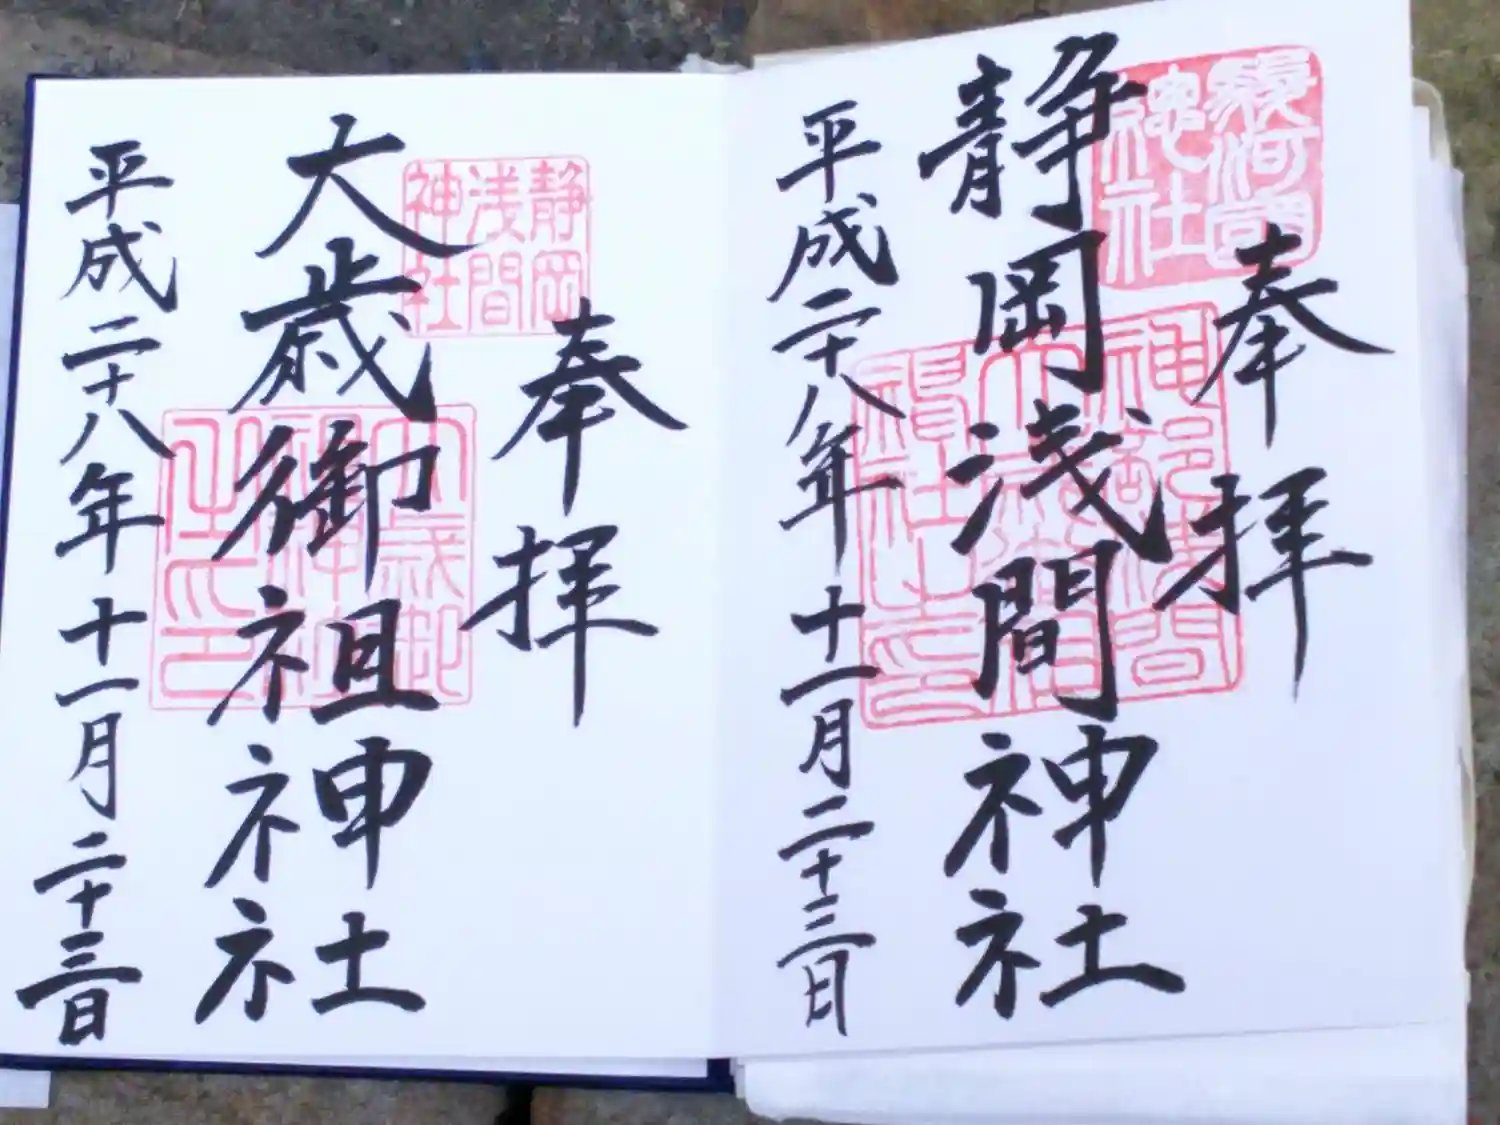 奉拝
駿河國
總社
静岡浅間神社
神部浅間
大歳御祖
神社之印
平成二十八年十一月二十三日
奉拝
静岡
浅間
神社
大歳御祖神社
大歳御
祖神社
之印
平成二十八年十一月二十三日